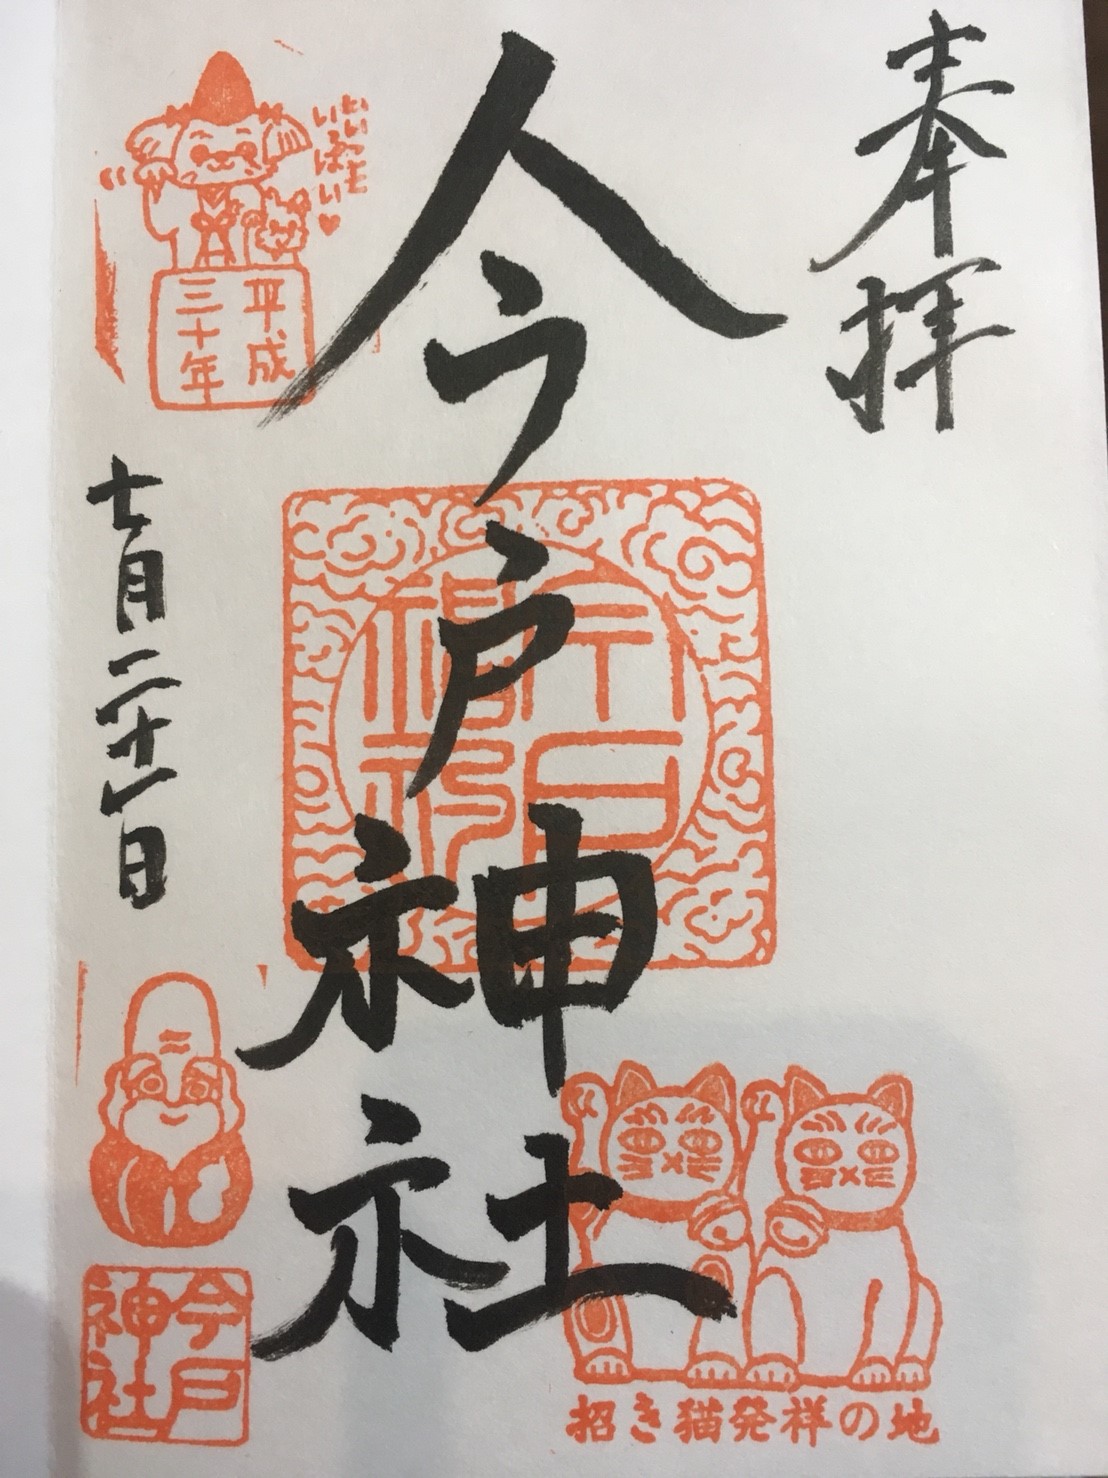 奉拝
今戸神社
いいこと
いっぱい♥
平成
三十年
七月二十一日
今戸
神社
招き猫発祥の地